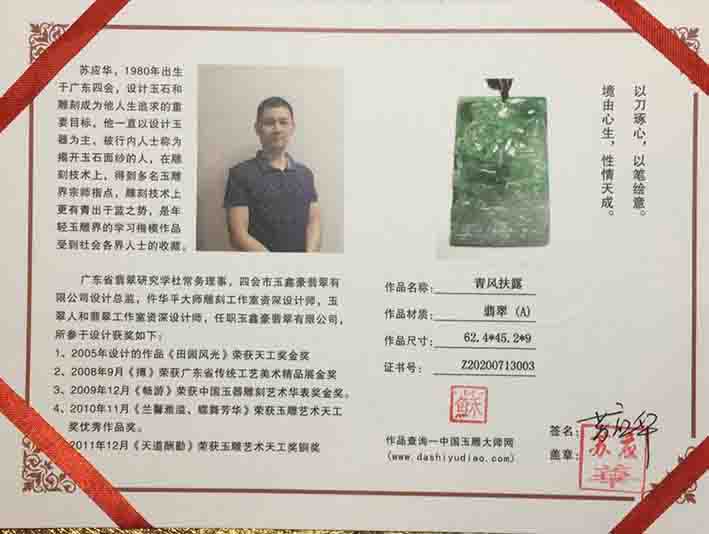 苏应华，1980年出生
于广东四会，设计玉石和
雕刻成为他人生追求的重
要目标，他一直以设计玉
器为主，被行内人士称为
揭开玉石面纱的人，在雕
刻技术上，得到多名玉雕
界宗师指点，雕刻技术上
更有青出于蓝之势，是年
轻玉雕界的学习楷模作品
受到社会各界人士的收藏。
广东省翡翠研究学社常务理事，四会市玉鑫豪翡翠有
限公司设计总监，仵华平大师雕刻工作室资深设计师，玉
翠人和翡翠工作室资深设计师，任职玉鑫豪翡翠有限公司，
所参于设计获奖如下：
1、2005年设计的作品《田园风光》荣获天工奖金奖
2、2008年9月《搏》荣获广东省传统工艺美术精品展金奖
3、2009年12月《畅游》荣获中国玉器雕刻艺术华表奖金奖。
4、2010年11月《兰馨雅溢、蝶舞芳华》荣获玉雕艺术天工
奖优秀作品奖。
2011年12月《天道酬勤》荣获玉雕艺术天工奖铜奖
以刀琢心，以笔绘意。
境由心生，性情天成。
作品名称：青风扶露
作品材质：翡翠 (A)
作品尺寸：62.4*45.2*9
证书号：Z20200713003
蘇
作品查询一中国玉雕大师网
(www.dashiyudiao.com)
签名：苏应华
盖章：苏应华